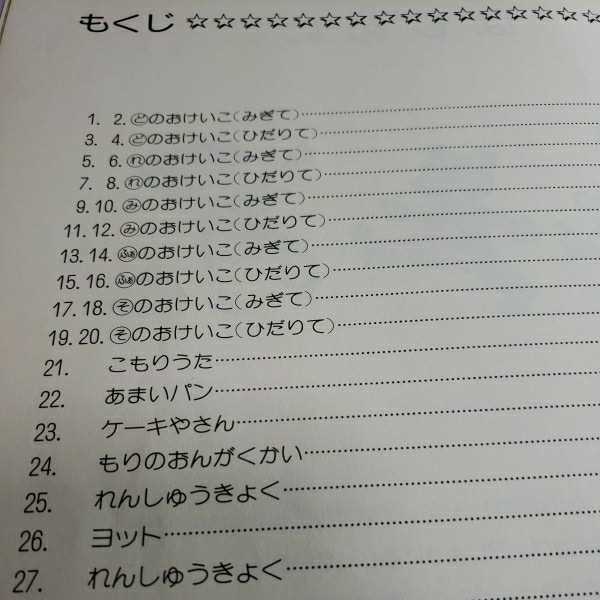 もくじ ☆☆☆☆☆☆☆☆☆☆☆☆☆☆☆☆
1. 2. ㋣のおけいこ(みぎて)
3. 4. ㋣のおけいこ(ひだりて)
5. 6. ㋹のおけいこ(みぎて)
7. 8. ㋹のおけいこ(ひだりて)
9. 10. ㋯のおけいこ(みぎて)
11. 12. ㋯のおけいこ(ひだりて)
13. 14. ふぁのおけいこ(みぎて)
15. 16. ふぁのおけいこ(ひだりて)
17. 18. そのおけいこ(みぎて)
19. 20. そのおけいこ(ひだりて)
21. こもりうた
22. あまいパン
23. ケーキやさん
24. もりのおんがくかい
25. れんしゅうきよく
26. ヨット
27. れんしゅうきよく